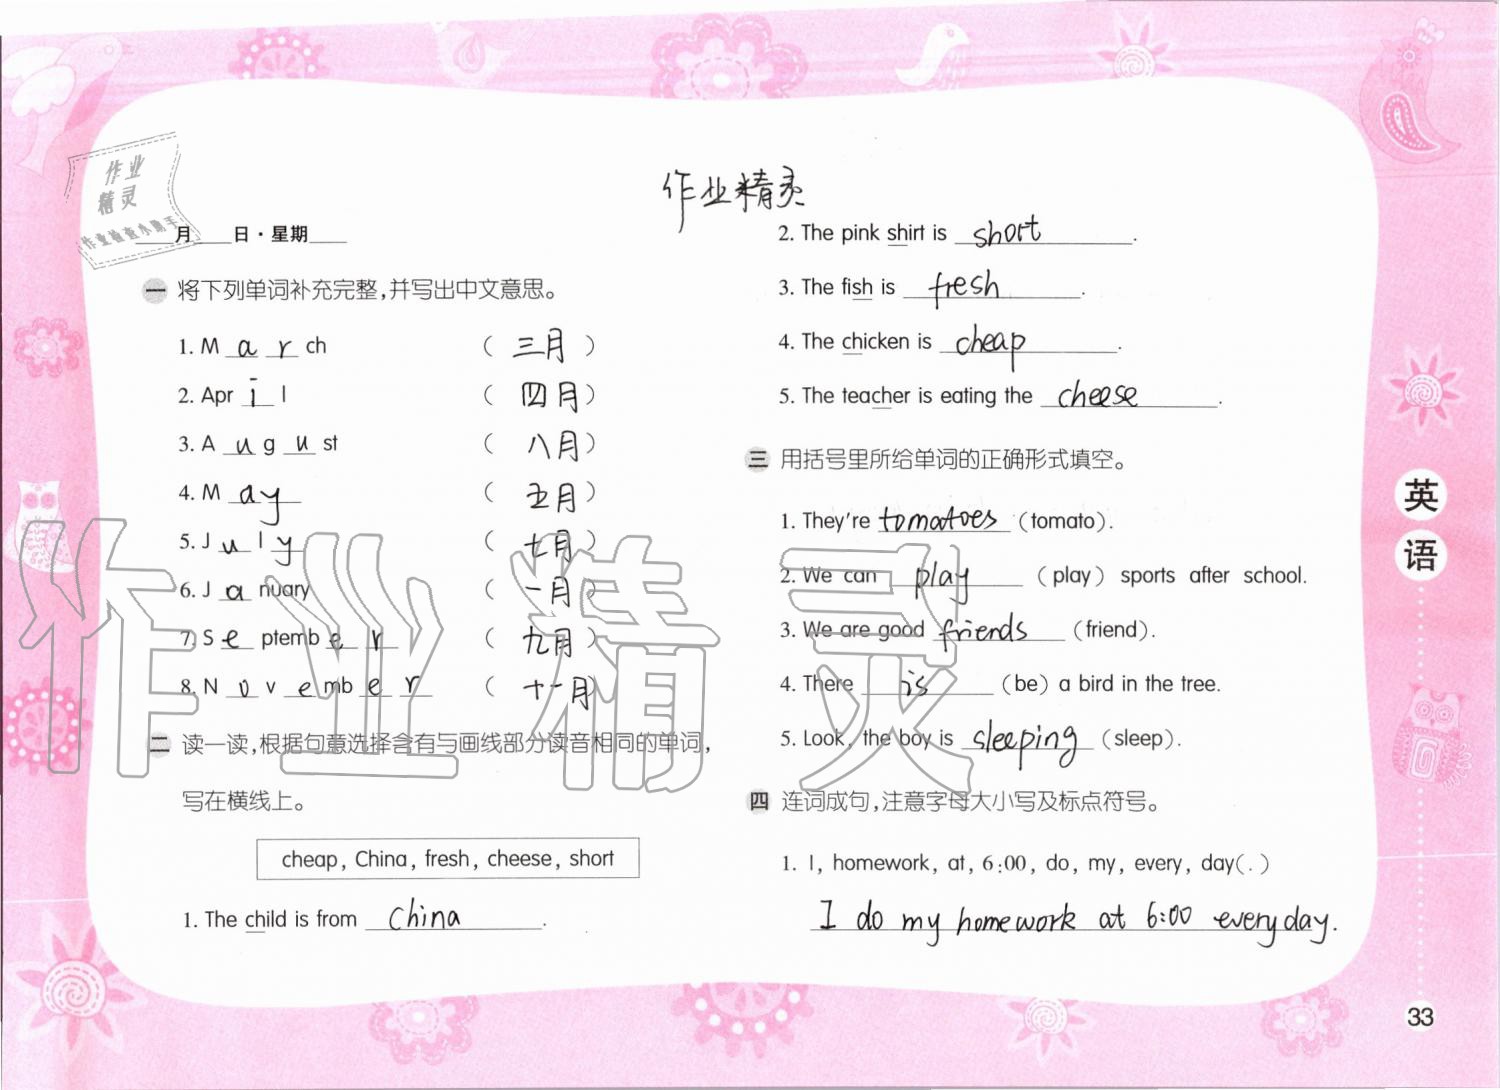 作业
精灵
作业检查小助手
作业精灵
____月____日·星期____
一 将下列单词补充完整，并写出中文意思。
1. M a r ch （ 三月 ）
2. Apr i l （ 四月 ）
3. A u g u st （ 八月 ）
4. M a y （ 五月 ）
5. J u l y （ 七月 ）
6. J a nuary （ 一月 ）
7. S e ptemb e r （ 九月 ）
8. N o v e mb e r （ 十一月 ）
二 读一读，根据句意选择含有与画线部分读音相同的单词，
写在横线上。
cheap, China, fresh, cheese, short
1. The child is from China .
2. The pink shirt is short .
3. The fish is fresh .
4. The chicken is cheap .
5. The teacher is eating the cheese .
三 用括号里所给单词的正确形式填空。
1. They're tomatoes (tomato).
2. We can play (play) sports after school.
3. We are good friends (friend).
4. There is (be) a bird in the tree.
5. Look, the boy is sleeping (sleep).
四 连词成句，注意字母大小写及标点符号。
1. I, homework, at, 6:00, do, my, every, day(.)
I do my homework at 6:00 every day.
英
语
33
作业精灵